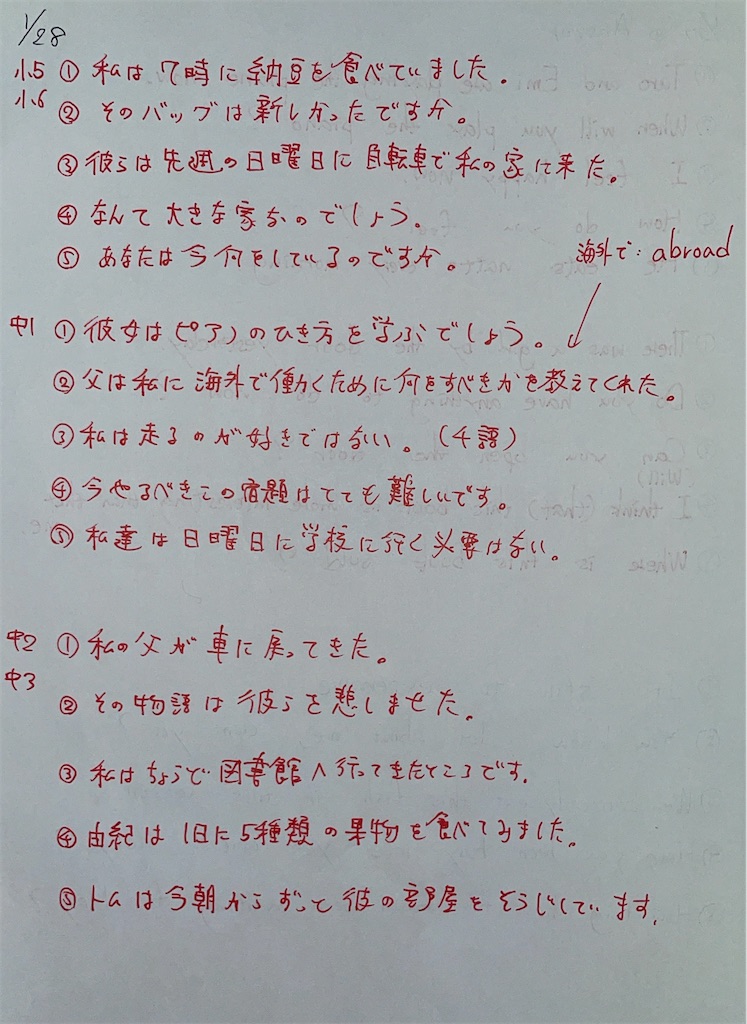 1/28
小5 ① 私は7時に納豆を食べていました。
小6 ② そのバッグは新しかったですか。
③ 彼らは先週の日曜日に自転車で私の家に来た。
④ なんて大きな家なのでしょう。
⑤ あなたは今何をしているのですか。
海外で: abroad
中1 ① 彼女はピアノのひき方を学ぶでしょう。
② 父は私に海外で働くために何をすべきかを教えてくれた。
③ 私は走るのが好きではない。(4語)
④ 今やるべきこの宿題はとても難しいです。
⑤ 私達は日曜日に学校に行く必要はない。
中2 ① 私の父が車に戻ってきた。
中3
② その物語は彼らを悲しませた。
③ 私はちょうど図書館へ行ってきたところです。
④ 由紀は1日に5種類の果物を食べてみました。
⑤ トムは今朝からずっと彼の部屋をそうじしています。